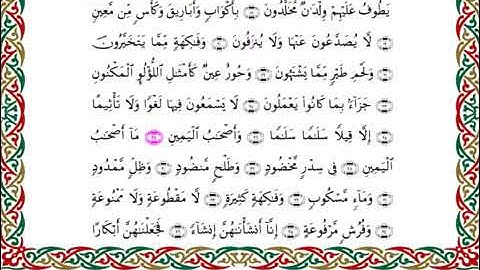 يَطُوفُ عَلَيْهِمْ وِلْدَٰنٌ مُّخَلَّدُونَ ۝ بِأَكْوَابٍ وَأَبَارِيقَ وَكَأْسٍ مِّن مَّعِينٍ
۝ لَّا يُصَدَّعُونَ عَنْهَا وَلَا يُنزَفُونَ ۝ وَفَٰكِهَةٍ مِّمَّا يَتَخَيَّرُونَ
۝ وَلَحْمِ طَيْرٍ مِّمَّا يَشْتَهُونَ ۝ وَحُورٌ عِينٌ ۝ كَأَمْثَٰلِ ٱللُّؤْلُؤِ ٱلْمَكْنُونِ
۝ جَزَآءًۢ بِمَا كَانُوا۟ يَعْمَلُونَ ۝ لَا يَسْمَعُونَ فِيهَا لَغْوًا وَلَا تَأْثِيمًا
۝ إِلَّا قِيلًا سَلَٰمًا سَلَٰمًا ۝ وَأَصْحَٰبُ ٱلْيَمِينِ ۝ مَآ أَصْحَٰبُ
ٱلْيَمِينِ ۝ فِى سِدْرٍ مَّخْضُودٍ ۝ وَطَلْحٍ مَّنضُودٍ ۝ وَظِلٍّ مَّمْدُودٍ
۝ وَمَآءٍ مَّسْكُوبٍ ۝ وَفَٰكِهَةٍ كَثِيرَةٍ ۝ لَّا مَقْطُوعَةٍ وَلَا مَمْنُوعَةٍ
۝ وَفُرُشٍ مَّرْفُوعَةٍ ۝ إِنَّآ أَنشَأْنَٰهُنَّ إِنشَآءً ۝ فَجَعَلْنَٰهُنَّ أَبْكَارًا